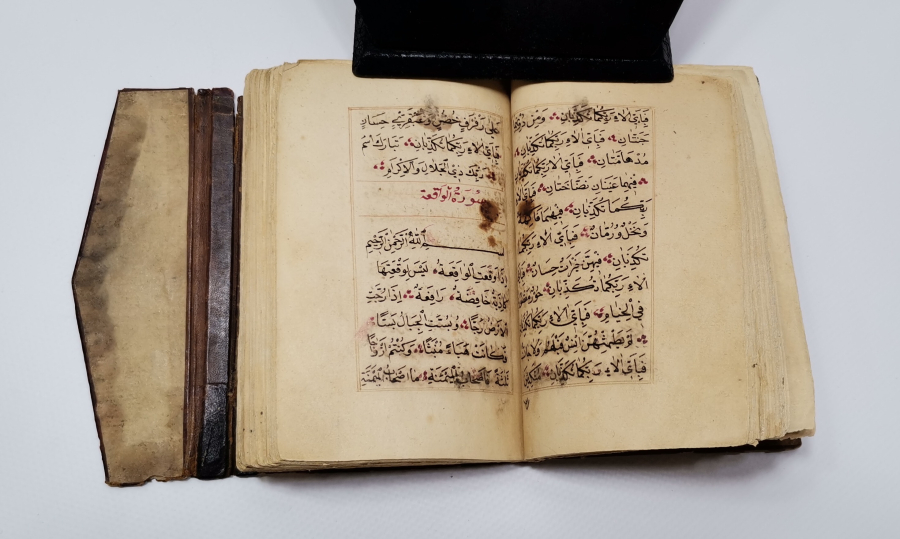 فَبِأَيِّ الَاءِ رَبِّكُمَا تُكَذِّبَانِ وَمِنْ دُونِ
جَنَّتَانِ فَبِأَيِّ الَاءِ رَبِّكُمَا تُكَذِّبَانِ
مُدْهَامَّتَانِ فَبِأَيِّ الَاءِ رَبِّكُمَا تُكَذِّبَانِ
فِيهِمَا عَيْنَانِ نَضَّاخَتَانِ فَبِأَيِّ
رَبِّكُمَا تُكَذِّبَانِ فِيهِمَا فَاكِهَةٌ
وَنَخْلٌ وَرُمَّانٌ فَبِأَيِّ الَاءِ رَبِّكُمَا
تُكَذِّبَانِ فِيهِنَّ خَيْرَاتٌ حِسَانٌ
الَاءِ رَبِّكُمَا تُكَذِّبَانِ حُورٌ
فِي الْخِيَامِ فَبِأَيِّ الَاءِ رَبِّكُمَا
لَمْ يَطْمِثْهُنَّ اِنْسٌ قَبْلَهُمْ وَلَا
فَبِأَيِّ الَاءِ رَبِّكُمَا تُكَذِّبَانِ
عَلَى رَفْرَفٍ خُضْرٍ وَعَبْقَرِيٍّ حِسَانٍ
فَبِأَيِّ الَاءِ رَبِّكُمَا تُكَذِّبَانِ تَبَارَكَ اسْمُ
رَبِّكَ ذِي الْجَلَالِ وَالْاِكْرَامِ
سُورَةُ الْوَاقِعَة
بِسْمِ اللّٰهِ الرَّحْمٰنِ الرَّحِيمِ
اِذَا وَقَعَتِ الْوَاقِعَةُ لَيْسَ لِوَقْعَتِهَا
كَاذِبَةٌ خَافِضَةٌ رَافِعَةٌ اِذَا رُجَّتِ
الْاَرْضُ رَجًّا وَبُسَّتِ الْجِبَالُ بَسًّا
فَكَانَتْ هَبَاءً مُنْبَثًّا وَكُنْتُمْ اَزْوَاجًا
ثَلٰثَةً فَاَصْحَابُ الْمَيْمَنَةِ مَا اَصْحَابُ الْمَيْمَنَةِ